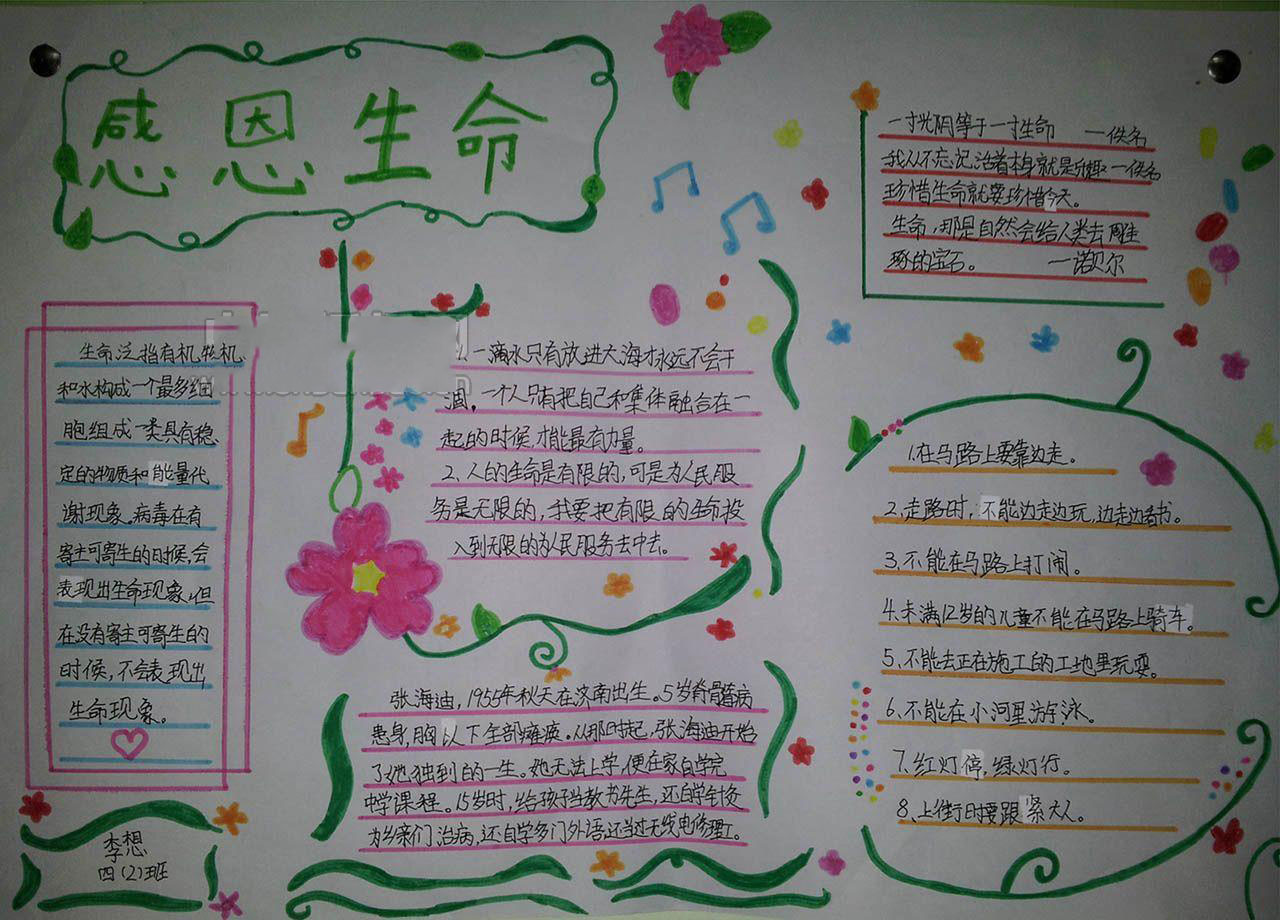 感恩生命
一寸光阴等于一寸生命 一佚名
我从不忘记,活着本身就是乐趣一佚名
珍惜生命就要珍惜今天。
生命,那是自然会给人类去雕
琢的宝石。 一诺贝尔
生命泛指有机物机
和水构成一个最多细
胞组成一类具有稳
定的物质和能量代
谢现象。病毒在有
寄主可寄生的时候,会
表现出生命现象,但
在没有寄主可寄生的
时候,不会表现出
生命现象。
1.一滴水只有放进大海才永远不会干
涸,一个人只有把自己和集体融合在一
起的时候,才能最有力量。
2、人的生命是有限的,可是为人民服
务是无限的,我要把有限的生命投
入到无限的为人民服务去中去。
张海迪,1955年秋天在济南出生。5岁脊髓病
患身,胸以下全部瘫痪。从那时起,张海迪开始
了她独到的一生。她无法上学,便在家自学院
中学课程。15岁时,给孩子当教书先生,还自学针灸
为乡亲们治病,还自学多门外语,还当过无线电修理工。
1.在马路上要靠边走。
2.走路时,不能边走边玩,边走边看书。
3、不能在马路上打闹。
4.未满12岁的儿童不能在马路上骑车。
5、不能去正在施工的工地里玩耍。
6、不能在小河里游泳。
7、红灯停,绿灯行。
8、上街时要跟紧大人。
李想
四(2)班